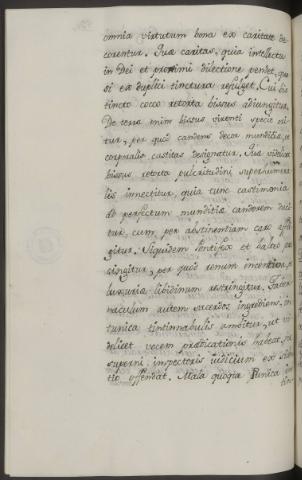 omnia virtutum bona ex caritate de
corentur. Quæ caritas, quia intellectu
in Dei et proximi dilectione pendet, qua
si ex duplici tinctura refulget. Cui bis
tincto cocco retorta bissus adjungitur.
De terra enim bissus virenti specie ori
tur, per quod candens decor munditiæ
corporalis castitas designatur. Quæ videlicet
bissus retorta pulcritudini superhumera
lis innectitur, quia tunc castimonia
ad perfectum munditiæ candorem duci
tur, cum per abstinentiam caro affli
gitur. Siquidem Pontifex et balteo
cingitur, per quod renum incentiva,
luxuriæ libidinum astringitur. Taber
naculum autem sacerdos ingrediens, in
tunica tintinnabulis ambitur, ut vi
delicet vocem prædicationis habeat, ne
superni inspectoris iudicium ex silen
tio offendat. Mala quoque Punica in
tin